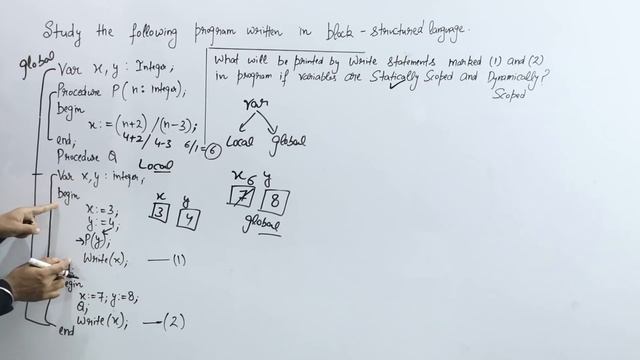 Study the following program written in block-structured language.
global
Var x, y : Integer;
Procedure P(n: Integer);
begin
x:=(n+2)/(n-3);
4+2/4-3 6/1=6
end;
Procedure Q
Local
Var x,y: integer;
begin
x:=3;
y:=4;
→P(y);
Write(x); —(1)
begin
x:=7; y:=8;
Q;
Write(x); —(2)
end
x y
3 4
What will be printed by write statements marked (1) and (2)
in program if variables are Statically Scoped and Dynamically?
Scoped
Var
Local global
x 6 y
7 8
global